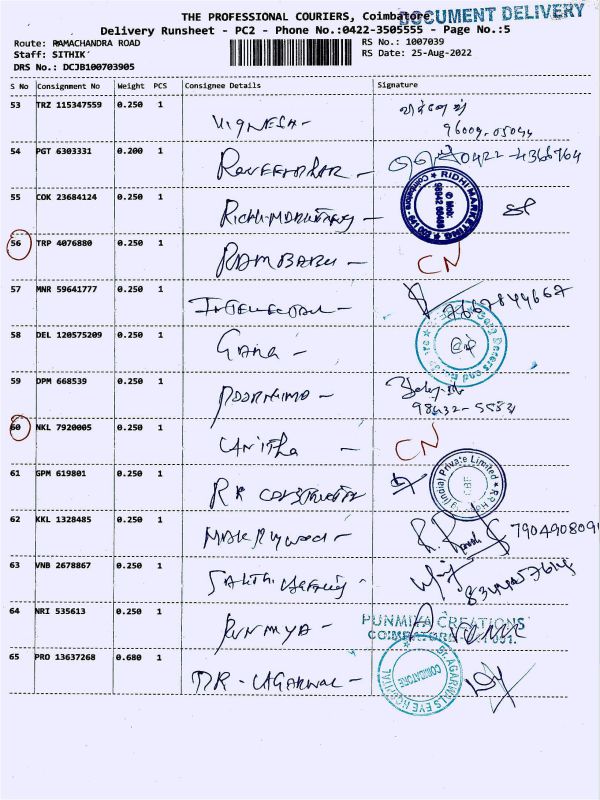 THE PROFESSIONAL COURIERS, Coimbatore
DOCUMENT DELIVERY
Delivery Runsheet - PC2 - Phone No.:0422-3505555 - Page No.:5
Route: RAMACHANDRA ROAD
RS No.: 1007039
Staff: SITHIK
RS Date: 25-Aug-2022
DRS No.: DCJB100703905
S No Consignment No Weight PCS Consignee Details Signature
53 TRZ 115347559 0.250 1 VIGNESH -
96009-05044
54 PGT 6303331 0.200 1
0422-4366764
55 COK 23684124 0.250 1
RIDHI MARKETING
56 TRP 4076880 0.250 1 RAMBABU - CN
57 MNR 59641777 0.250 1
7667844667
58 DEL 120575209 0.250 1 GANA -
59 DPM 668539 0.250 1 POORNIMA -
60 NKL 7920005 0.250 1 VANITHA - CN
61 GPM 619801 0.250 1 RR CONSTRUCTION
(India) Private Limited
CBE
62 KKL 1328485 0.250 1
7904908091
63 VNB 2678867 0.250 1
64 NRI 535613 0.250 1 PUNMIYA -
PUNMIYA CREATIONS
65 PRO 13637268 0.680 1 DR - AGARWAL -
Dr. AGARWALS EYE HOSPITAL
COIMBATORE